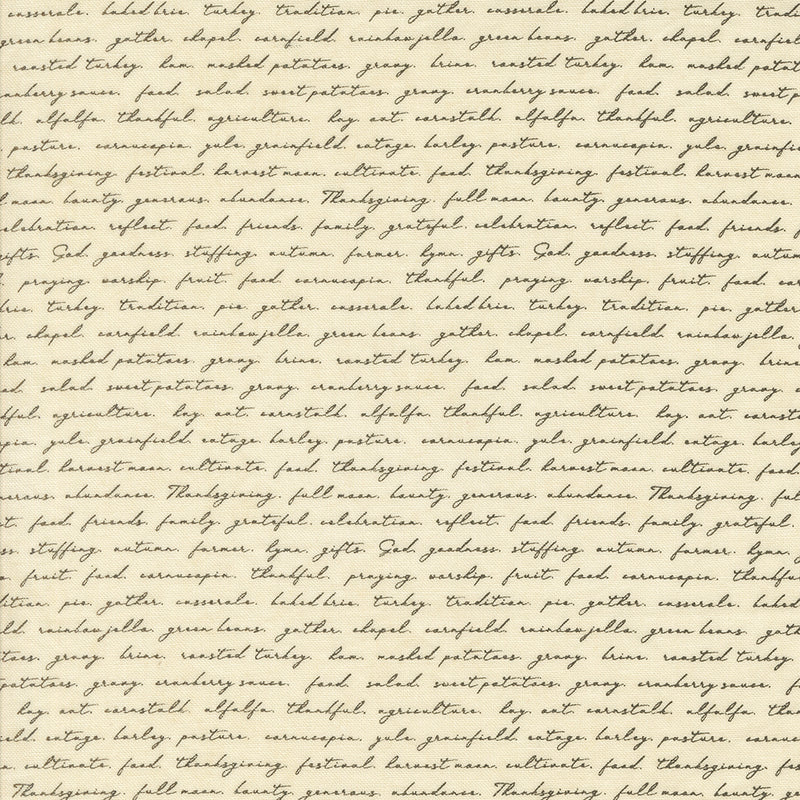 casserole. baked brie. turkey. tradition. pie. gather. casserole. baked brie. turkey.
green beans. gather. chapel. cornfield. rainbow jello. green beans. gather. chapel.
roasted turkey. ham. mashed potatoes. gravy. brine. roasted turkey. ham. mashed
sauce. food. salad. sweet potatoes. gravy. cranberry sauce. food. salad. sweet
alfalfa. thankful. agriculture. hay. oat. cornstalk. alfalfa. thankful. agriculture.
pasture. cornucopia. yule. grainfield. eatage. barley. pasture. cornucopia. yule.
thanksgiving. festival. harvest moon. cultivate. food. thanksgiving. festival. harvest moon
moon. bounty. generous. abundance. Thanksgiving. full moon. bounty. generous. abundance.
celebration. reflect. food. friends. family. grateful. celebration. reflect. food. friends.
gifts. God. goodness. stuffing. autumn. farmer. hymn. gifts. God. goodness. stuffing.
praying. worship. fruit. food. cornucopia. thankful. praying. worship. fruit. food.
brie. turkey. tradition. pie. gather. casserole. baked brie. turkey. tradition. pie. gather
chapel. cornfield. rainbow jello. green beans. gather. chapel. cornfield. rainbow jello.
ham. mashed potatoes. gravy. brine. roasted turkey. ham. mashed potatoes. gravy. brine
salad. sweet potatoes. gravy. cranberry sauce. food. salad. sweet potatoes. gravy.
agriculture. hay. oat. cornstalk. alfalfa. thankful. agriculture. hay. oat.
yule. grainfield. eatage. barley. pasture. cornucopia. yule. grainfield. eatage.
harvest moon. cultivate. food. thanksgiving. festival. harvest moon. cultivate. food.
abundance. Thanksgiving. full moon. bounty. generous. abundance. Thanksgiving.
food. friends. family. grateful. celebration. reflect. food. friends. family. grateful.
stuffing. autumn. farmer. hymn. gifts. God. goodness. stuffing. autumn. farmer. hymn.
fruit. food. cornucopia. thankful. praying. worship. fruit. food. cornucopia.
pie. gather. casserole. baked brie. turkey. tradition. pie. gather. casserole. baked
rainbow jello. green beans. gather. chapel. cornfield. rainbow jello. green beans.
gravy. brine. roasted turkey. ham. mashed potatoes. gravy. brine. roasted turkey.
gravy. cranberry sauce. food. salad. sweet potatoes. gravy. cranberry sauce.
hay. oat. cornstalk. alfalfa. thankful. agriculture. hay. oat. cornstalk. alfalfa.
eatage. barley. pasture. cornucopia. yule. grainfield. eatage. barley. pasture.
cultivate. food. thanksgiving. festival. harvest moon. cultivate. food. thanksgiving.
Thanksgiving. full moon. bounty. generous. abundance. Thanksgiving. full moon. bounty.